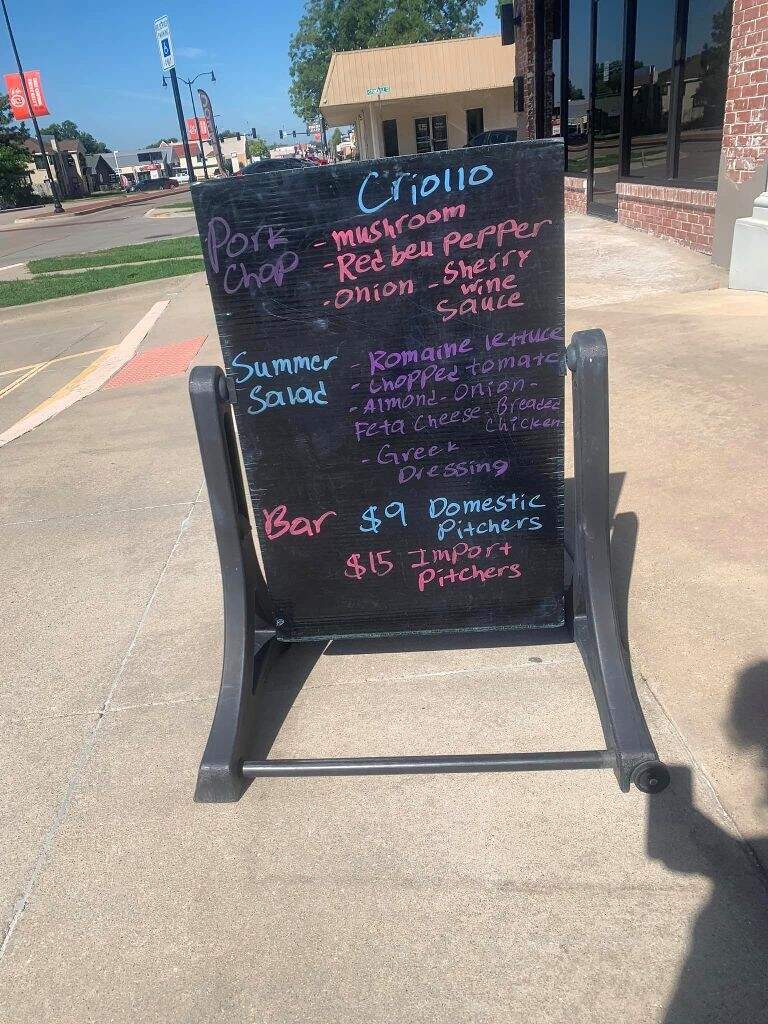 Criollo
Pork
Chop
- mushroom
- Red bell Pepper
- Onion - Sherry
wine
Sauce
Summer
Salad
- Romaine lettuce
- Chopped tomato
- Almond - Onion -
Feta Cheese - Breaded
Chicken
- Greek
Dressing
Bar $9 Domestic
Pitchers
$15 Import
Pitchers